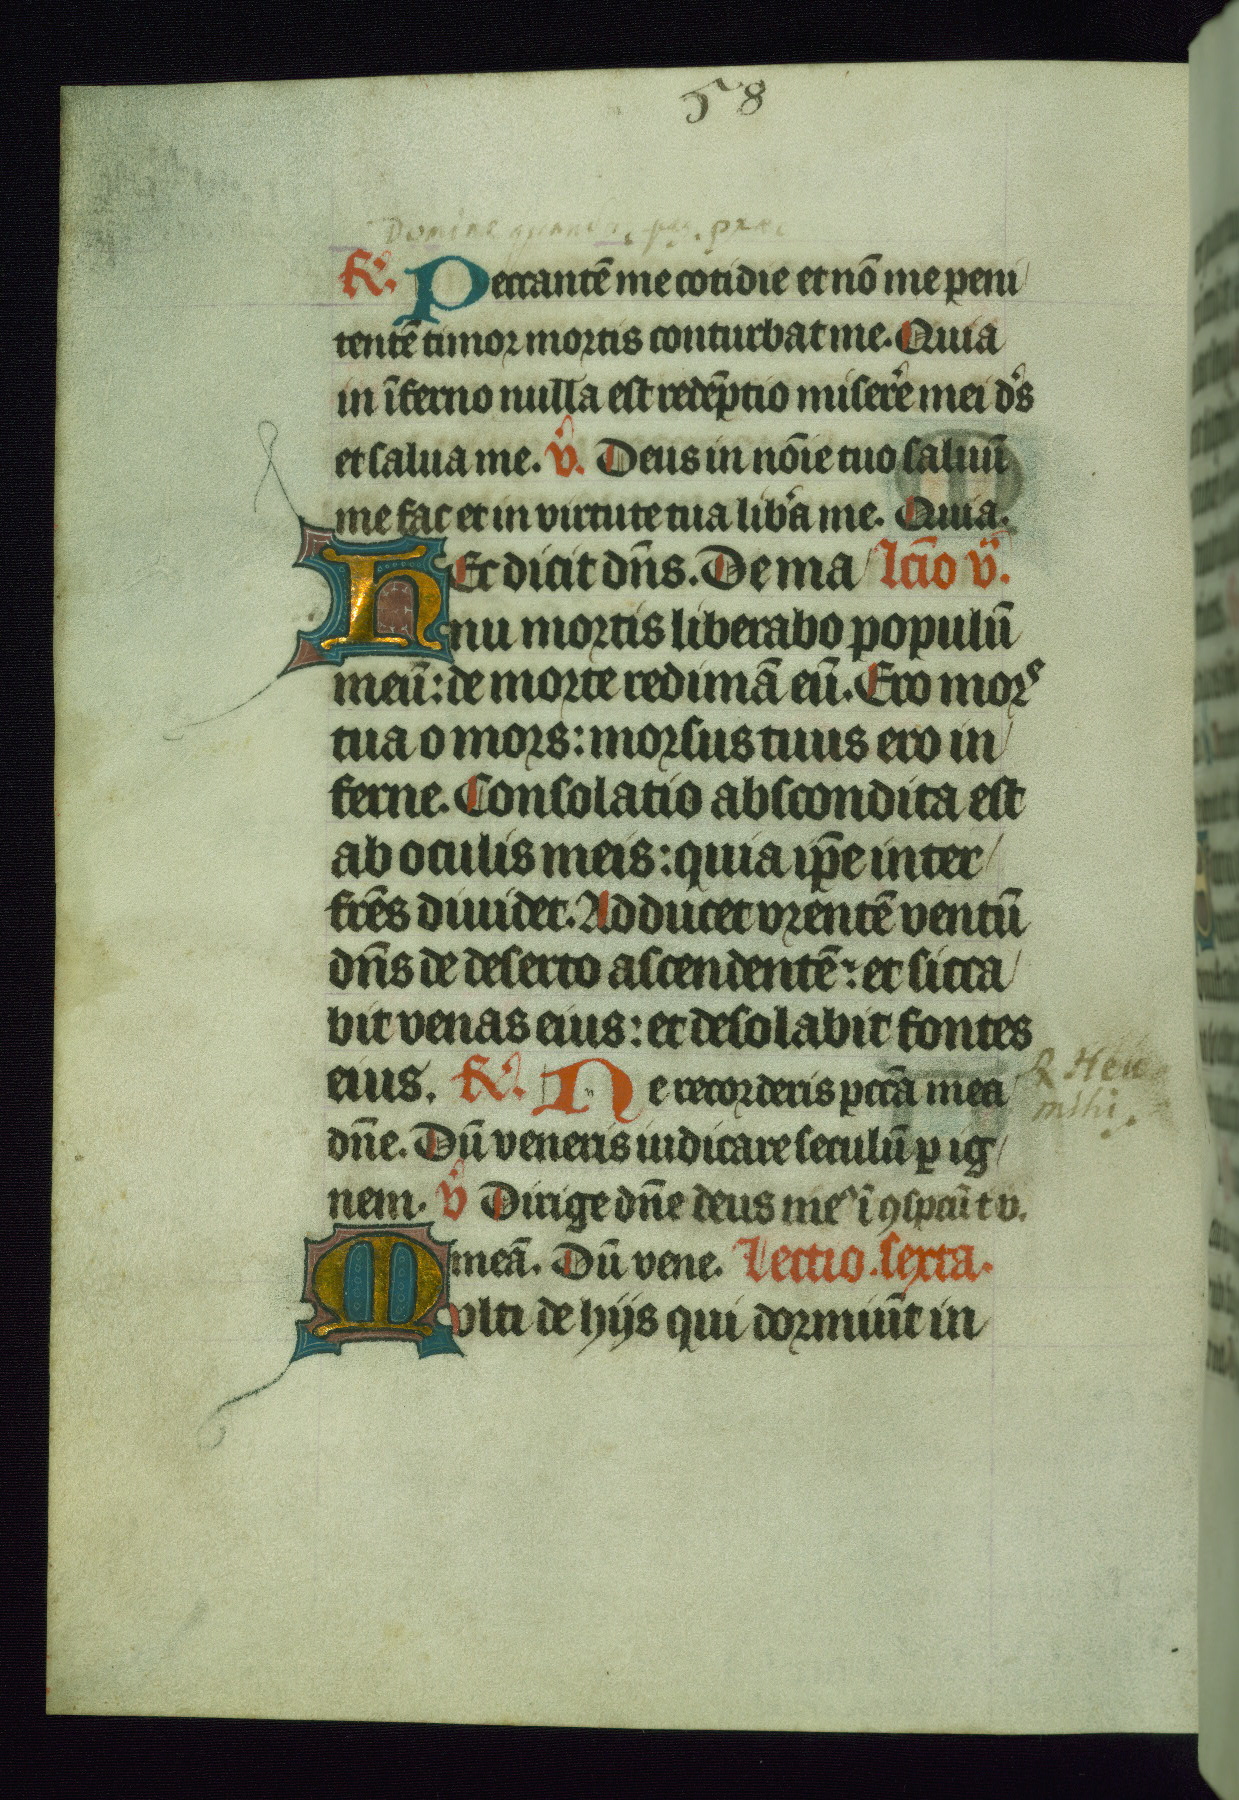 58
Domine quando
R. Peccantē me cotidie et nō me peni
tentē timor mortis conturbat me. Quia
in īferno nulla est redēptio miser̄e mei ds
et salua me. V. Deus in nōie tuo saluū
me fac et in virtute tua lib̄a me. Quia.
Hec dicit dn̄s. De ma lcīo v.
nu mortis liberabo populū
meū: de morte redimā eū. Ero mors
tua o mors: morsus tuus ero in
ferne. Consolatio abscondita est
ab oculis meis: quia ip̄e inter
fr̄es diuidet. Adducet vrentē ventū
dn̄s de deserto ascendentē: et sicca
bit venas eius: et desolabit fontes
eius. R. Ne recorderis pccā mea
R Heu
mihi.
dn̄e. Dū veneris iudicare seculū p ig
nem. V Dirige dn̄e deus me⁹ ī ꝯspcū t v.
meā. Dū vene. Lectio sexta.
Multi de hijs qui dormiūt in